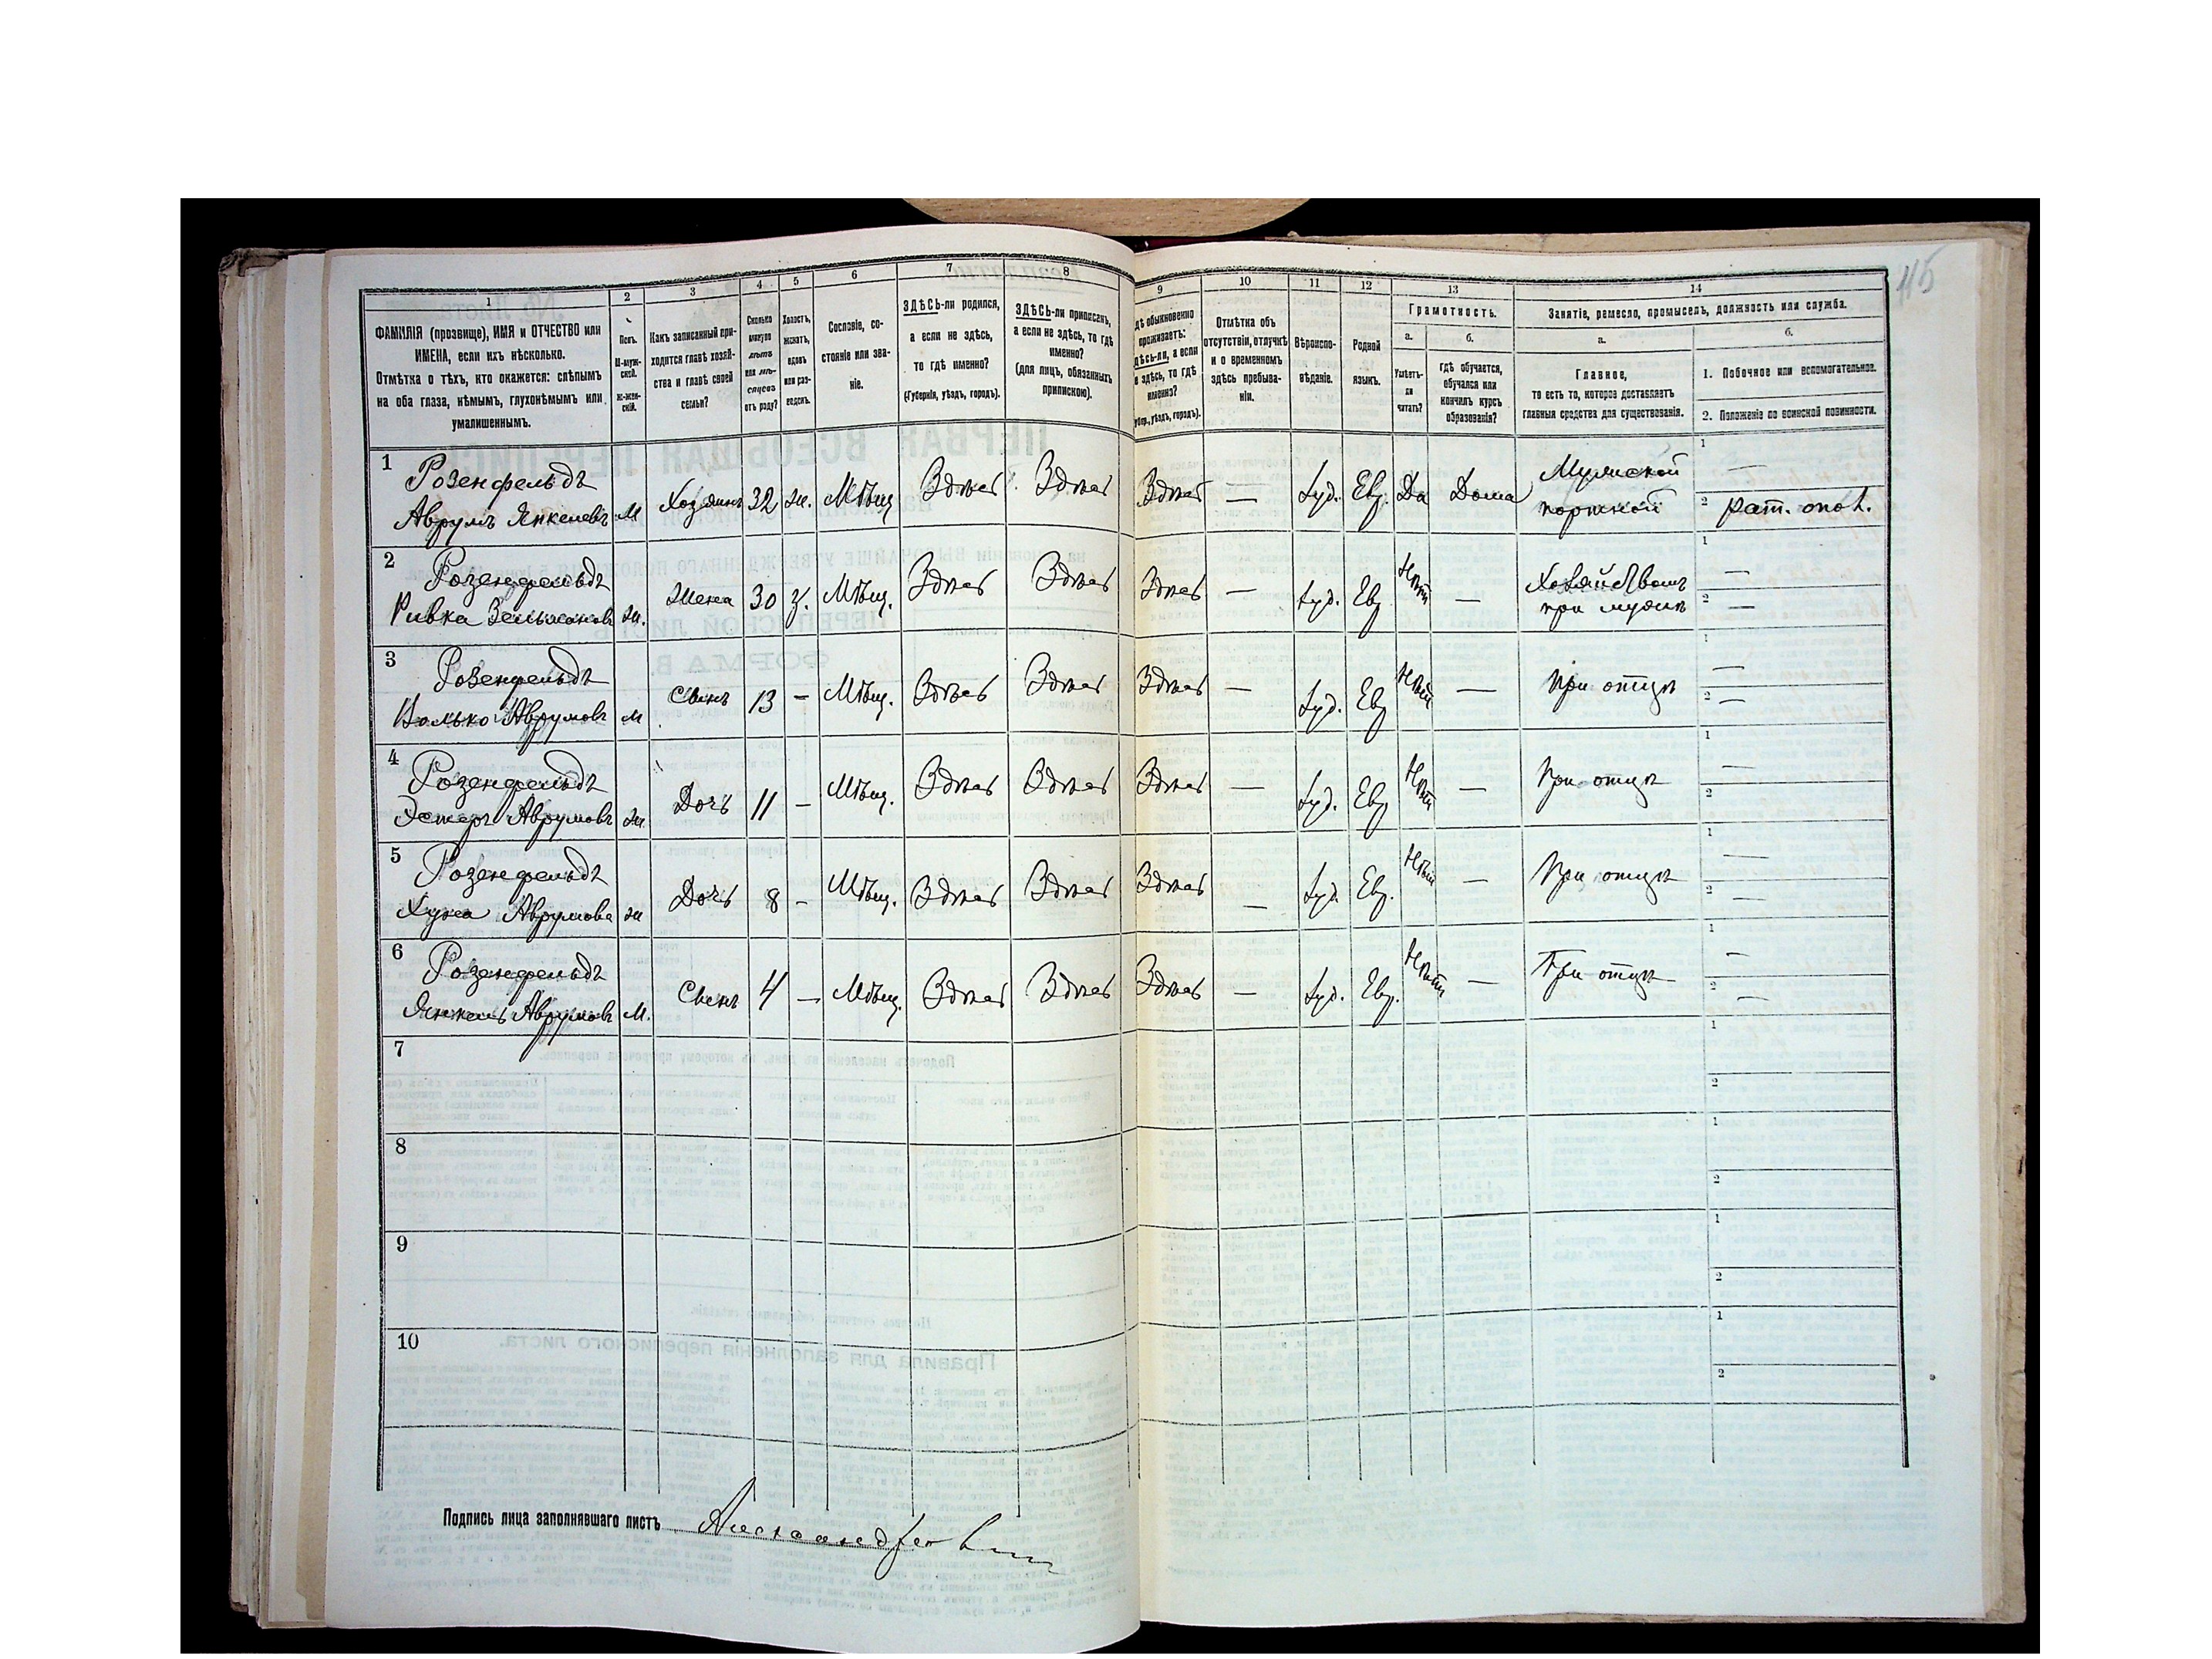 115
1 2 3 4 5 6 7 8 9 10 11 12 13 14
ФАМИЛІЯ (прозвище), ИМЯ и ОТЧЕСТВО или
ИМЕНА, если ихъ нѣсколько.
Отмѣтка о тѣхъ, кто окажется: слѣпымъ
на оба глаза, нѣмымъ, глухонѣмымъ или
умалишеннымъ.
Полъ.
М-муж-
ской.
ж-жен-
скій.
Какъ записанный при-
ходится главѣ хозяй-
ства и главѣ своей
семьи?
Сколько
минуло
лѣтъ
или мѣ-
сяцевъ
отъ роду?
Холостъ,
женатъ,
вдовъ
или раз-
веденъ.
Сословіе, со-
стояніе или зва-
ніе.
ЗДѢСЬ-ли родился,
а если не здѣсь,
то гдѣ именно?
(Губернія, уѣздъ, городъ).
ЗДѢСЬ-ли приписанъ,
а если не здѣсь, то гдѣ
именно?
(для лицъ, обязанныхъ
припискою).
дѣ обыкновенно
проживаетъ:
дѣсь-ли, а если
е здѣсь, то гдѣ
именно?
убер., уѣздъ, городъ).
Отмѣтка объ
отсутствіи, отлучкѣ
и о временномъ
здѣсь пребыва-
ніи.
Вѣроиспо-
вѣданіе.
Родной
языкъ.
Грамотность.
а. б.
Умѣетъ-
ли
читать?
гдѣ обучается,
обучался или
кончилъ курсъ
образованія?
Занятіе, ремесло, промыселъ, должность или служба.
а. б.
Главное,
то есть то, которое доставляетъ
главныя средства для существованія.
1. Побочное или вспомогательное.
2. Положеніе по воинской повинности.
1 Розенфельдъ
Аврумъ Янкелевъ М Хозяинъ 32 ж. Мѣщ Здѣсь Здѣсь Здѣсь — Іуд. Евр. Да Дома Мужской
портной
1 —
2 рат. опол.
2 Розенфельдъ
Ривка Зельманов ж. Жена 30 з. Мѣщ. Здѣсь Здѣсь Здѣсь — Іуд. Евр Нѣтъ — Хозяйством
при мужѣ
1 —
2 —
3 Розенфельдъ
Волько Аврумовъ М Сынъ 13 — Мѣщ. Здѣсь Здѣсь Здѣсь — Іуд. Евр Нѣтъ — При отцѣ
1 —
2 —
4 Розенфельдъ
Эстеръ Аврумовъ ж. Дочь 11 — Мѣщ. Здѣсь Здѣсь Здѣсь — Іуд. Евр Нѣтъ — При отцѣ
1 —
2
5 Розенфельдъ
Аврумова ж Дочь 8 — Мѣщ. Здѣсь Здѣсь Здѣсь — Іуд. Евр. Нѣтъ — При отцѣ
1 —
2 —
6 Розенфельдъ
Янкель Аврумовъ М. Сынъ 4 — Мѣщ. Здѣсь Здѣсь Здѣсь — Іуд. Евр. Нѣтъ — При отцѣ
1 —
2 —
7 1
2
8 1
2
9 1
2
10 1
2
Подпись лица заполнявшаго листъ